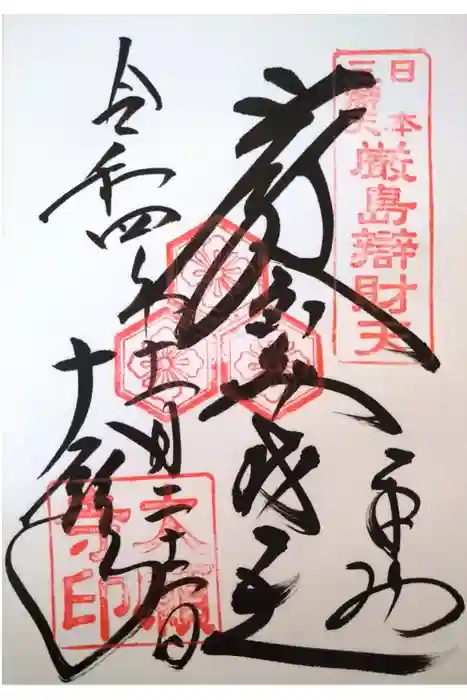 日本
三辯天
厳島辯財天
奉拝
厳島弁財天
令和四年十一月二十日
大願寺
大願寺印